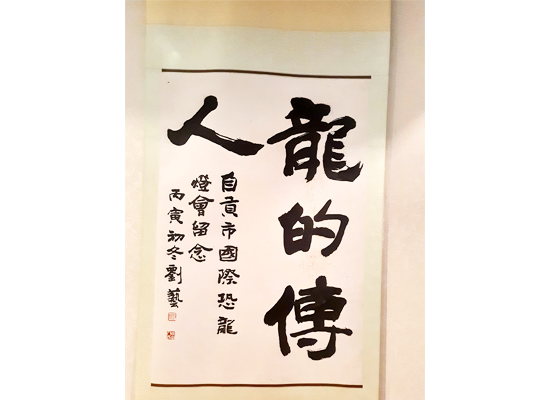 龍的傳
人
自貢市國際恐龍
燈會留念
丙寅初冬劉藝